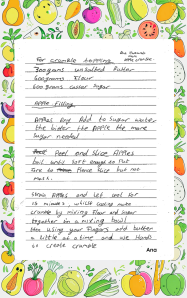 For crumble topping
300grams unsalted butter
600grams flour
600 grams caster sugar
Apple filling
Apples any Add to sugar water
the bigger the apple the more
sugar needed
Peel and slice Apples
boil until soft enough to put
Fork to pierce slice but not
mash.
Strain Apples and let cool for
15 minutes, whilst using make
crumble by mixing flour and sugar
together in a mixing bowl
then using your fingers add butter
a little at a time and use hands
to create crumble
Ana